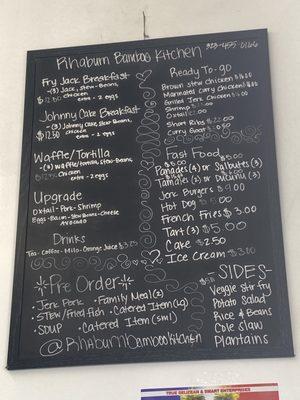 Rhaburn Bamboo Kitchen
323-455-0166
Fry Jack Breakfast
-(3) Jack, Stew-Beans,
$12.50 Chicken
extra - 2 eggs
Johnny Cake Breakfast
-(3) Johnny Cake, Stew Beans,
$12.50 chicken
extra - 2 eggs
Waffle/Tortilla
-(2) Waffle/Tortilla, Stew-beans,
$12.50 Chicken
extra - 2 eggs
Upgrade
Oxtail-Pork-Shrimp
Eggs-Bacon-Stew Beans-Cheese
Avocado
Drinks
Tea-Coffee-Milo-Orange Juice $3.00
Pre Order
Jerk Pork
Family Meal(2)
Stew/Fried fish
Catered Item(Lg)
Soup
Catered Item (sml)
@Rhaburnbambookitchen
Ready To-go
Brown stew chicken $16.00
Marinated Curry chicken
Grilled Jerk Chicken $16.00
Shrimp
Oxtail
Short Ribs $22.00
Curry Goat
Fast Food
$5.00
Panades(4) or Salbutes(3)
Tamales(2) or Ducunu(3)
Jerk Burgers $9.00
Hot Dog $5.00
French Fries $3.00
Tart (3) $5.00
Cake $2.50
Ice Cream $3.00
-SIDES-
Veggie Stir fry
Potato Salad
Rice & Beans
Cole slaw
Plantains
TRUE BELIZEAN & SMART ENTERPRISES